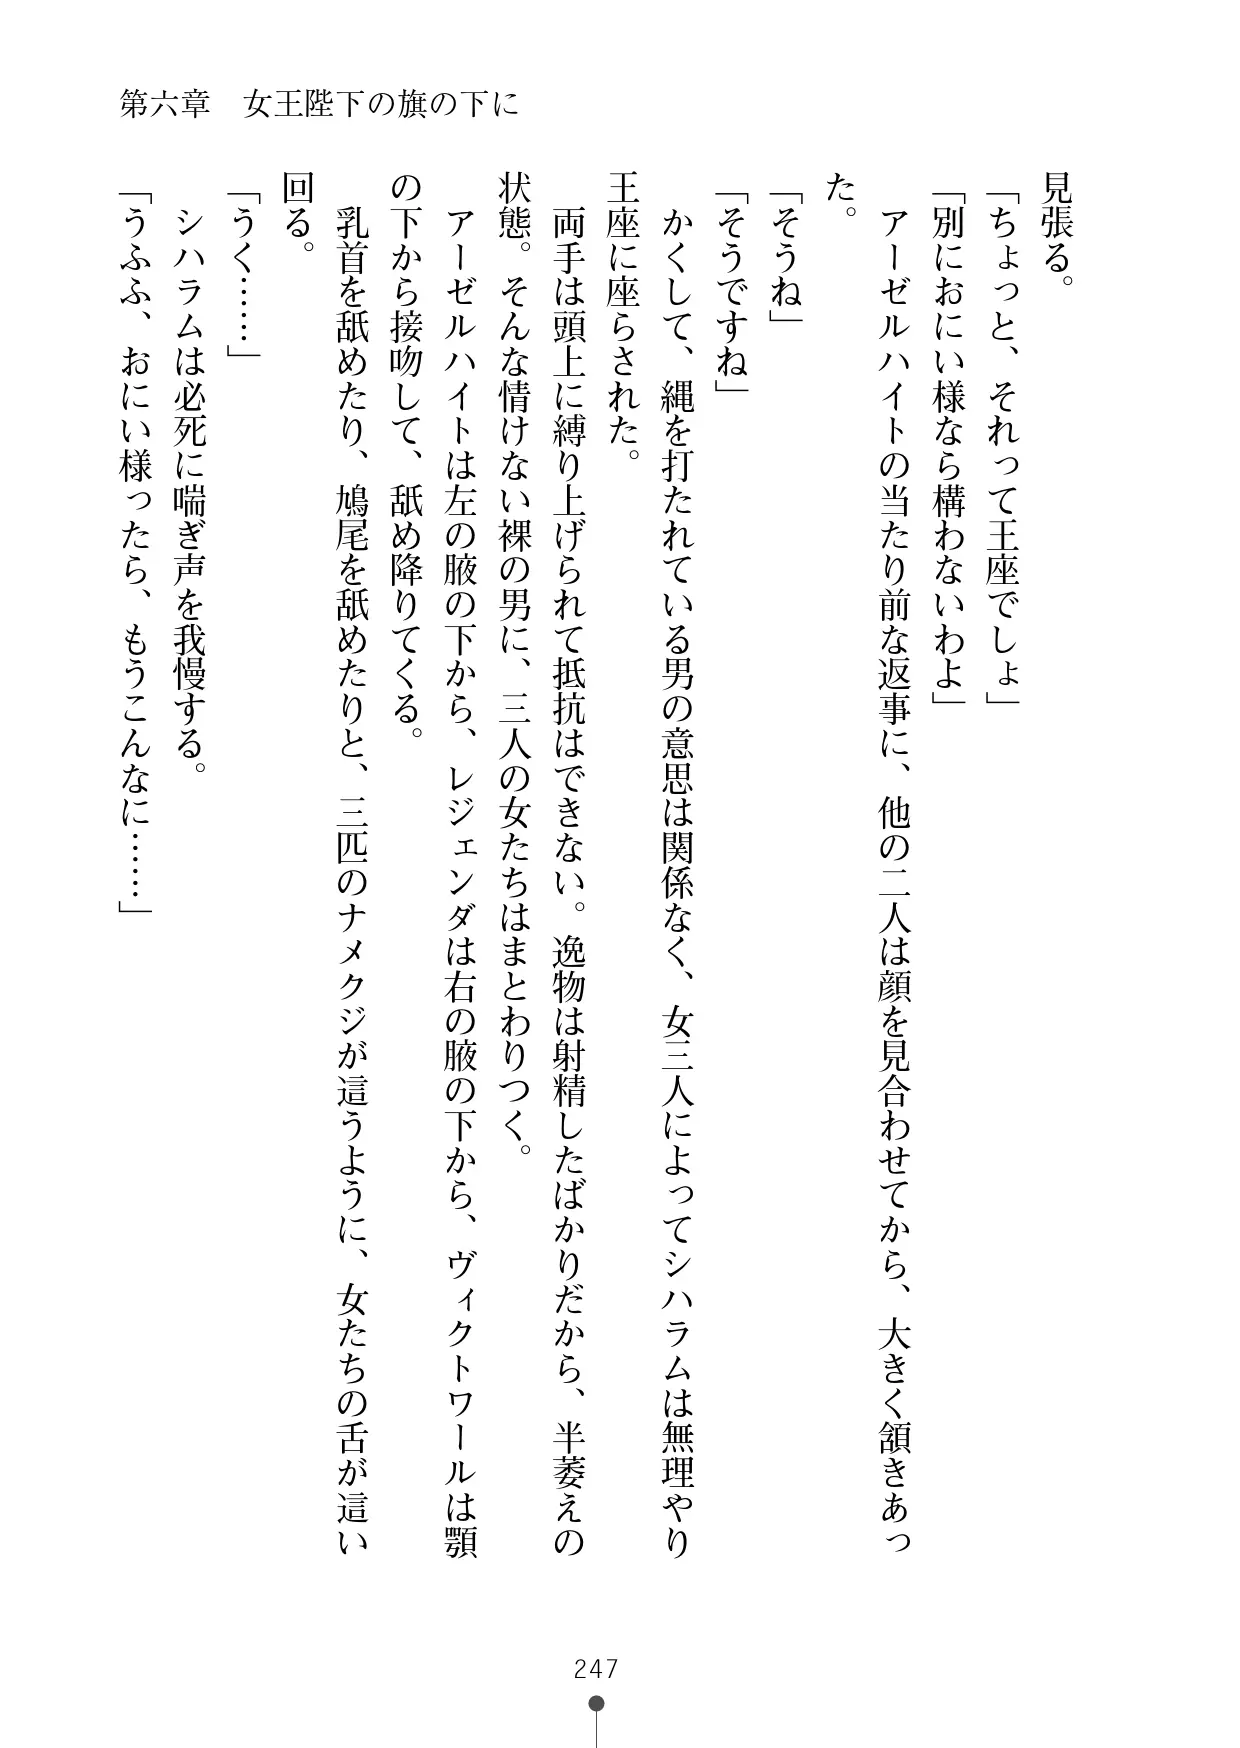 第六章　女王陛下の旗の下に
見張る。
「ちょっと、それって王座でしょ」
「別におにい様なら構わないわよ」
　アーゼルハイトの当たり前な返事に、他の二人は顔を見合わせてから、大きく頷きあっ
た。
「そうね」
「そうですね」
　かくして、縄を打たれている男の意思は関係なく、女三人によってシハラムは無理やり
王座に座らされた。
　両手は頭上に縛り上げられて抵抗はできない。逸物は射精したばかりだから、半萎えの
状態。そんな情けない裸の男に、三人の女たちはまとわりつく。
　アーゼルハイトは左の腋の下から、レジェンダは右の腋の下から、ヴィクトワールは顎
の下から接吻して、舐め降りてくる。
　乳首を舐めたり、鳩尾を舐めたりと、三匹のナメクジが這うように、女たちの舌が這い
回る。
「うく……」
　シハラムは必死に喘ぎ声を我慢する。
「うふふ、おにい様ったら、もうこんなに……」
247